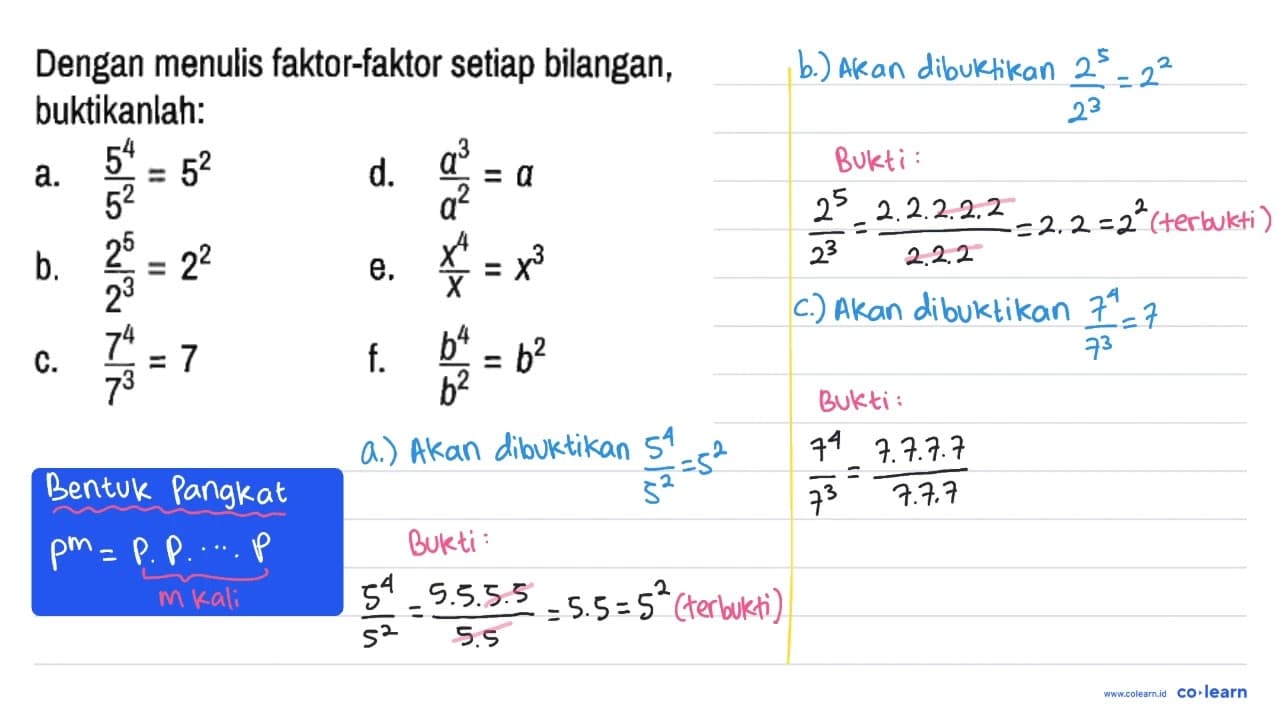 Dengan menulis faktor-faktor setiap bilangan,
buktikanlah:
a. 5⁴/5² = 5²
b. 2⁵/2³ = 2²
c. 7⁴/7³ = 7
d. a³/a² = a
e. x⁴/x = x³
f. b⁴/b² = b²
Bentuk Pangkat
pᵐ = p. p. .... p
m kali
a.) Akan dibuktikan 5⁴/5² = 5²
Bukti:
5⁴/5² = 5.5.5.5/5.5 = 5.5 = 5² (terbukti)
b.) Akan dibuktikan 2⁵/2³ = 2²
Bukti:
2⁵/2³ = 2.2.2.2.2/2.2.2 = 2.2 = 2² (terbukti)
c.) Akan dibuktikan 7⁴/7³ = 7
Bukti:
7⁴/7³ = 7.7.7.7/7.7.7
www.colearn.id co·learn